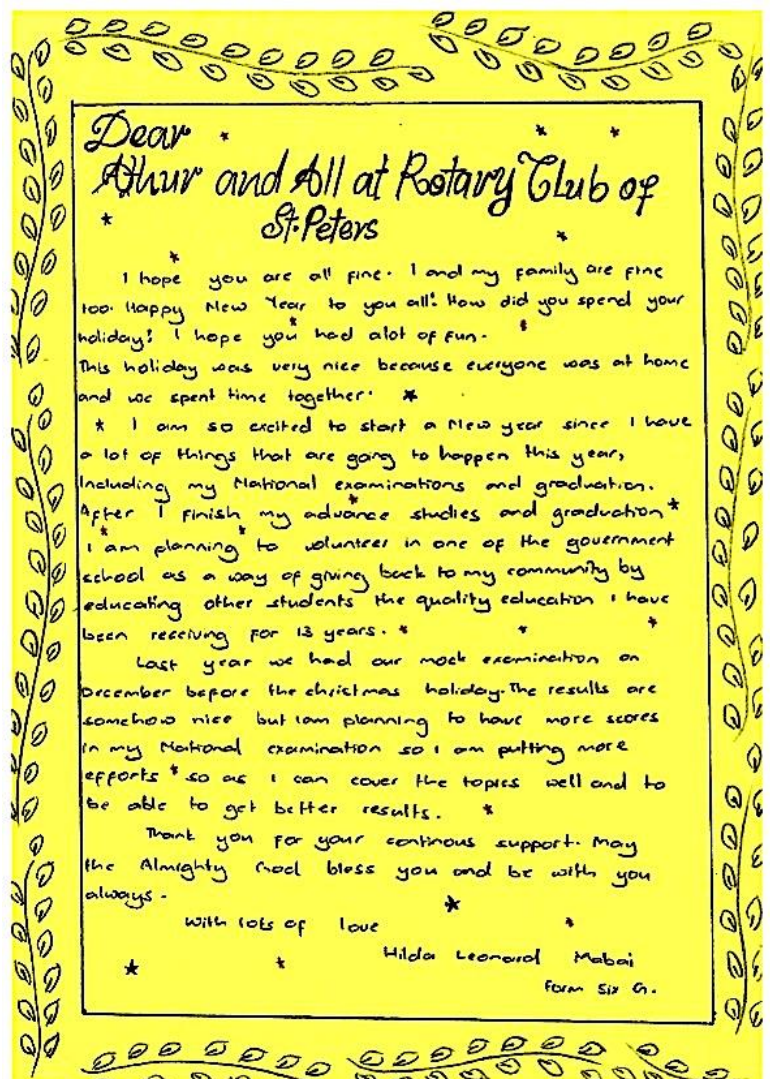 Dear
Athur and All at Rotary Club of
St. Peters
I hope you are all fine. I and my family are fine
too. Happy New Year to you all! How did you spend your
holiday? I hope you had alot of fun.
This holiday was very nice because everyone was at home
and we spent time together.
I am so excited to start a New year since I have
a lot of things that are going to happen this year,
Including my National examinations and graduation.
After I finish my advance studies and graduation
I am planning to volunteer in one of the government
school as a way of giving back to my community by
educating other students the quality education I have
been receiving for 13 years.
Last year we had our mock examination on
December before the christmas holiday. The results are
somehow nice but iam planning to have more scores
in my National examination so I am putting more
efforts so as I can cover the topics well and to
be able to get better results.
Thank you for your continous support. May
the Almighty God bless you and be with you
always.
With lots of love
Hilda Leonard Mabai
Form Six G.